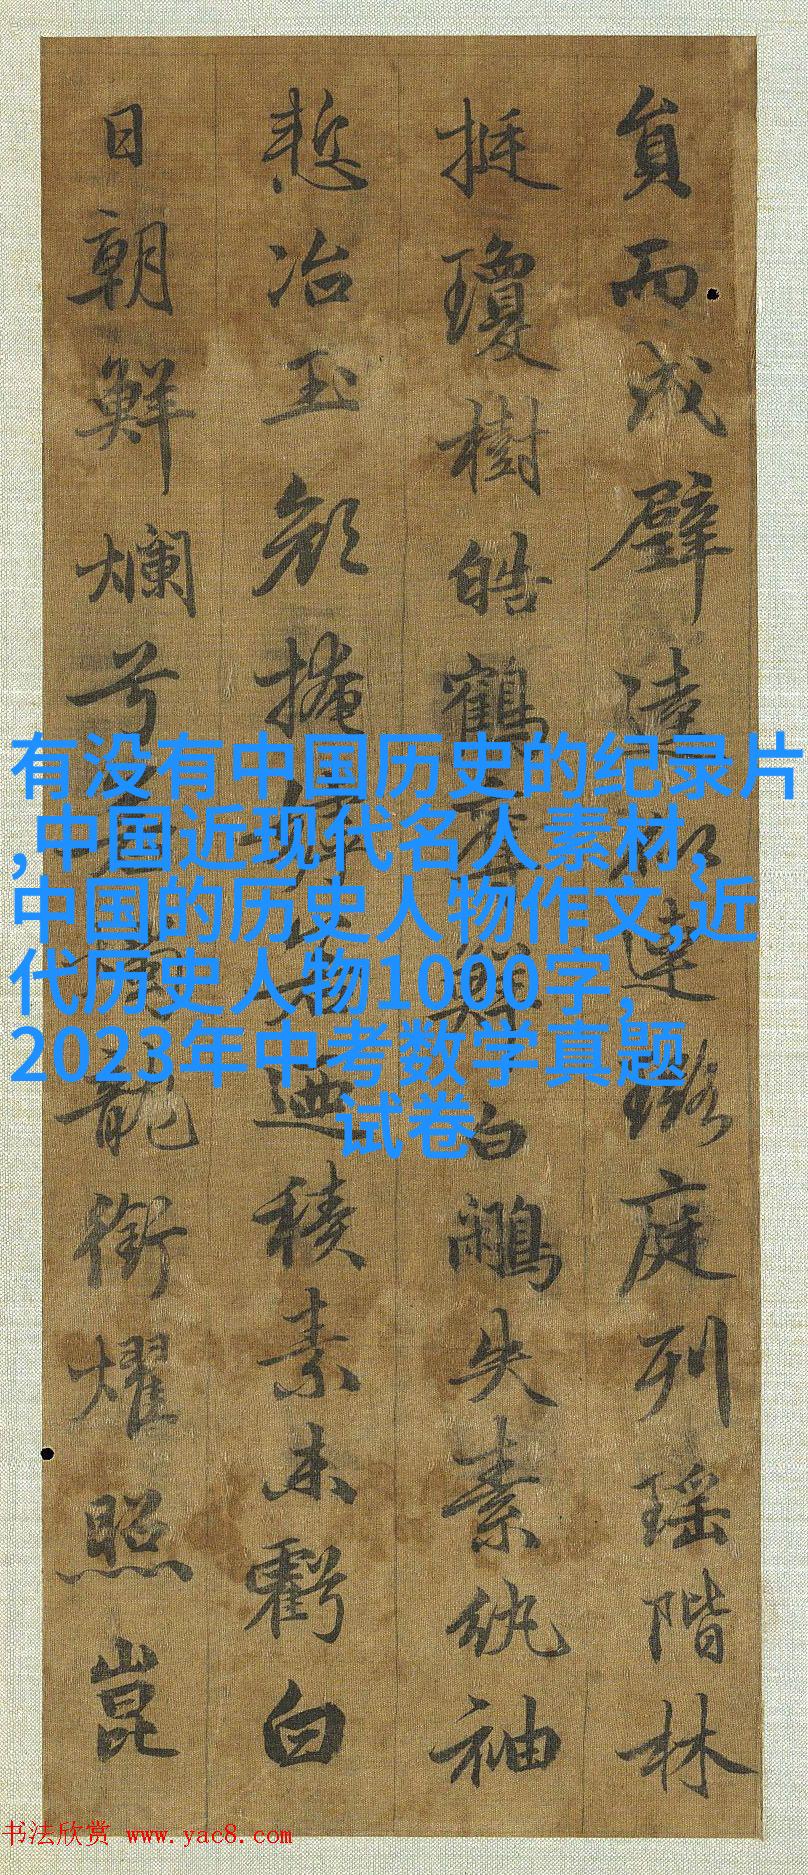 員而成璧逵似連璐庭列瑶階林
挺瓊樹皓鶴奪鮮白鷴失素紈袖
慙冶玉顏掩迺積素未虧白
日朝鮮爛兮龍銜燿照崑
有没有中国历史的纪录片
,中国近现代名人素材,
中国的历史人物作文,近
代历史人物1000字,
2023年中考数学真题
试卷
书法欣赏 www.yac8.com